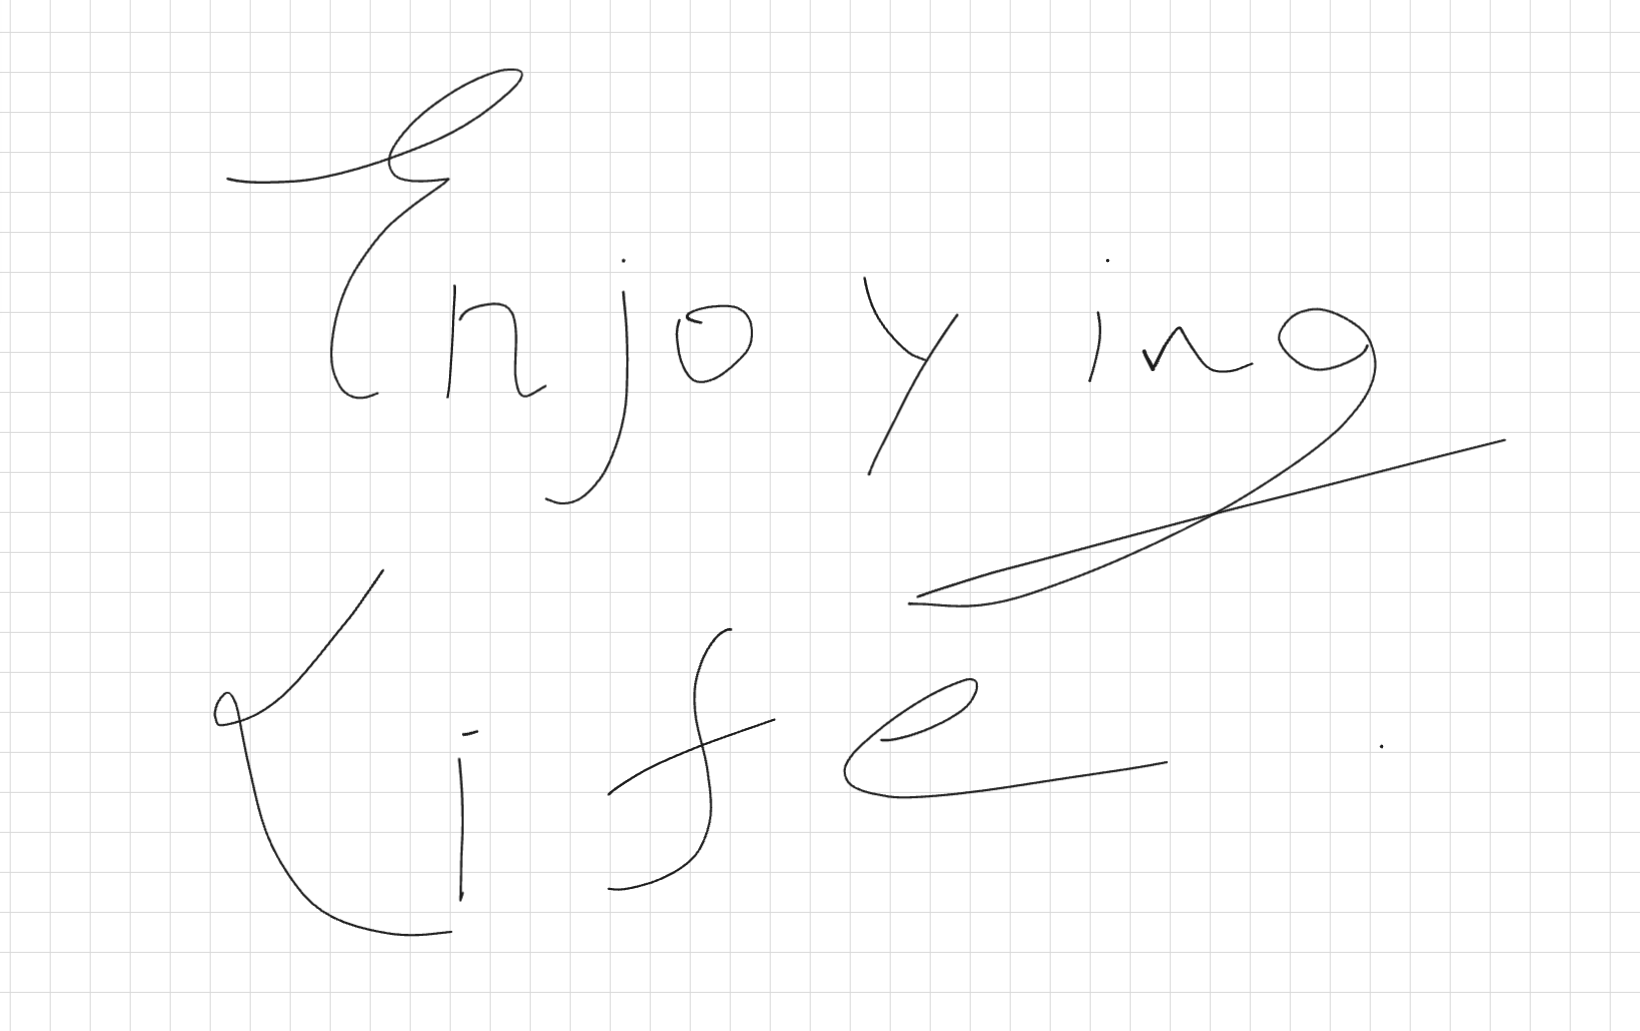 Enjoying
Life.